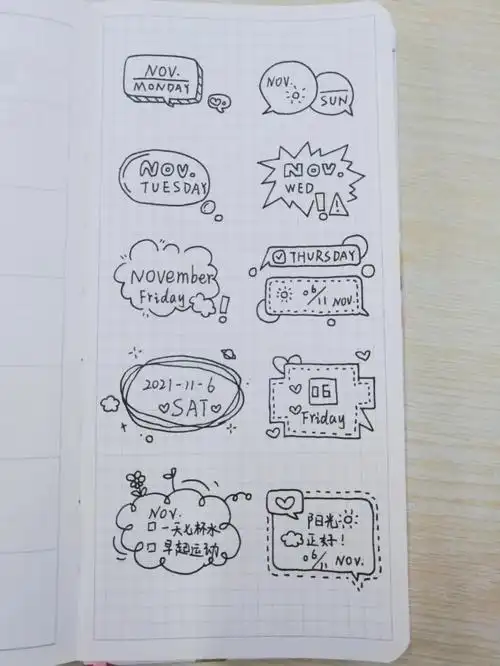 NOV.
MONDAY
NOV.
SUN
NOV.
TUESDAY
NOV.
WED
!
!
November
Friday
!
THURSDAY
06/11 NOV.
2021-11-6
SAT
06
Friday
NOV.
一天七杯水
早起运动
阳光
正好!
06/11 NOV.